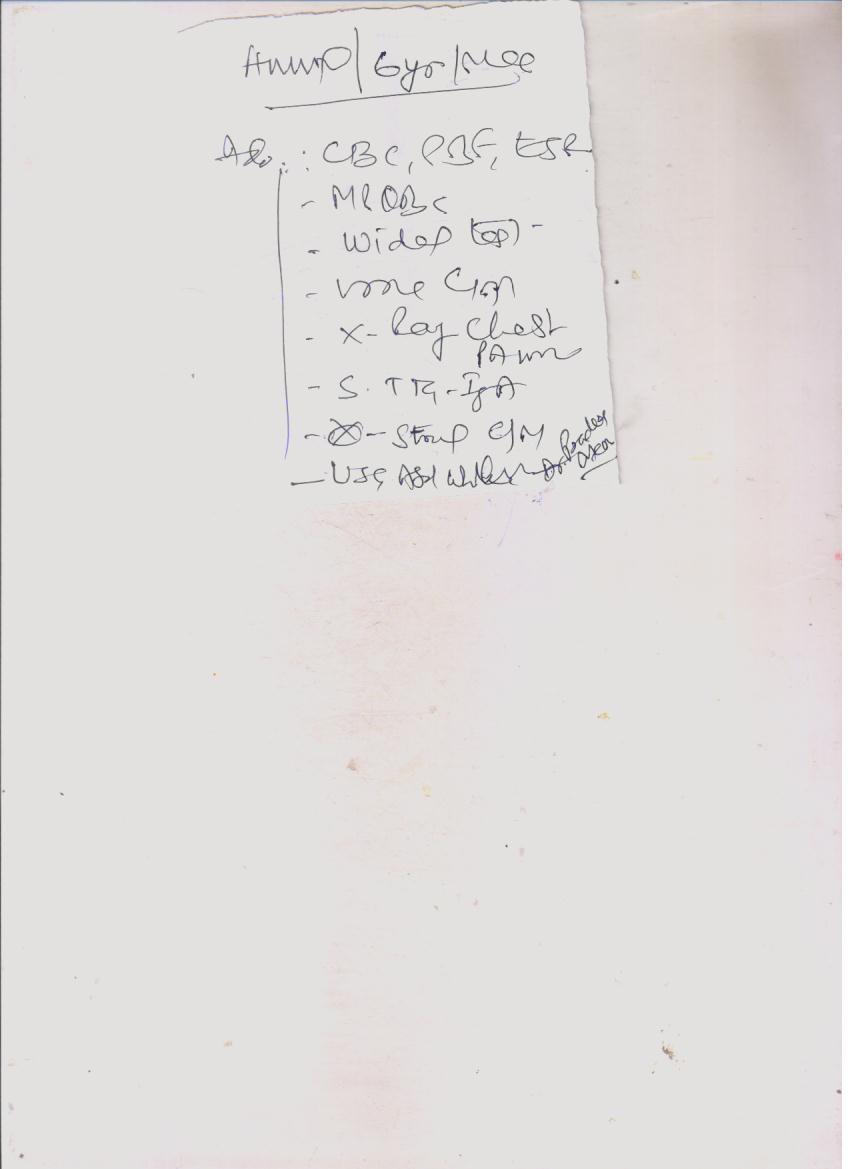 6yr/Male
Adv.: CBC, PBF, ESR
- MP QBC
- Widal test -
- Urine C/M
- X-Ray Chest
PA view
- S. TTG-IgA
- Stool C/M
- USG Abd Whole